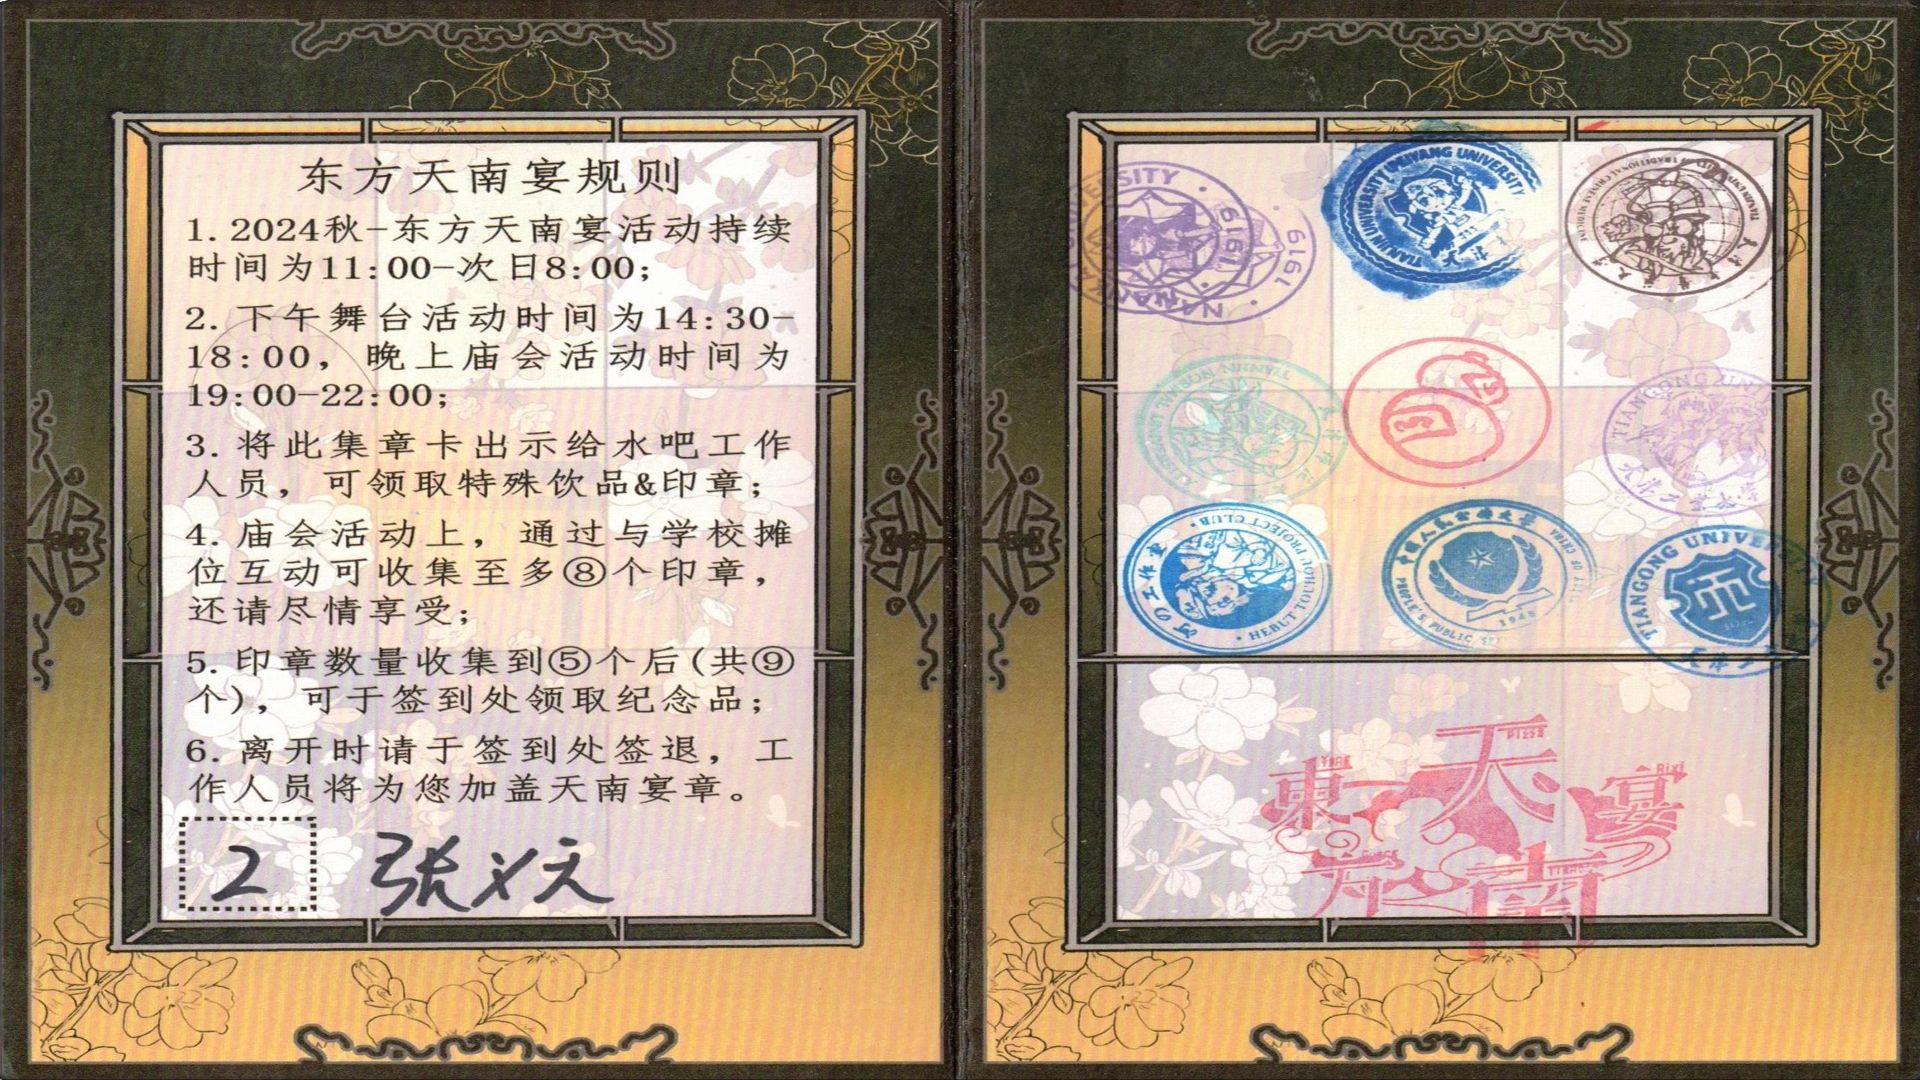 东方天南宴规则
1. 2024秋-东方天南宴活动持续
时间为11:00-次日8:00;
2. 下午舞台活动时间为14:30-
18:00，晚上庙会活动时间为
19:00-22:00;
3. 将此集章卡出示给水吧工作
人员，可领取特殊饮品&印章;
4. 庙会活动上，通过与学校摊
位互动可收集至多⑧个印章，
还请尽情享受;
5. 印章数量收集到⑤个后(共⑨
个)，可于签到处领取纪念品;
6. 离开时请于签到处签退，工
作人员将为您加盖天南宴章。
2
1919
1919
TIANJIN UNIVERSITY WEIYANG UNIVERSITY
TIANGONG UNI
HEBUT TOUHOU PROJECT CLUB
中国人民公安大学
PEOPLE'S PUBLIC SE
CHINA
1948
TIANGONG UNIVE
東方天南宴